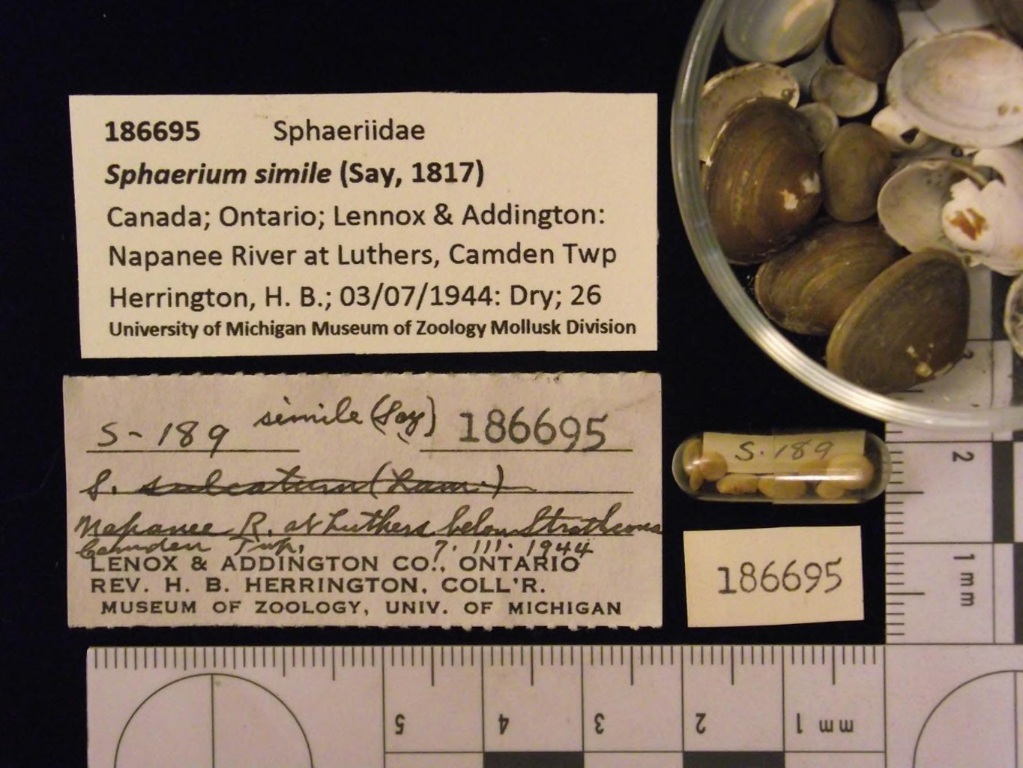 186695 Sphaeriidae
Sphaerium simile (Say, 1817)
Canada; Ontario; Lennox & Addington:
Napanee River at Luthers, Camden Twp
Herrington, H. B.; 03/07/1944: Dry; 26
University of Michigan Museum of Zoology Mollusk Division
S-189 simile (Say) 186695
S. sulcatum (Lam.)
Napanee R. at Luthers below Strathcona
Camden Twp. 7. III. 1944
LENOX & ADDINGTON CO., ONTARIO
REV. H. B. HERRINGTON, COLL'R.
MUSEUM OF ZOOLOGY, UNIV. OF MICHIGAN
S. 189
186695
2
1 mm
5 4 3 2 1 mm